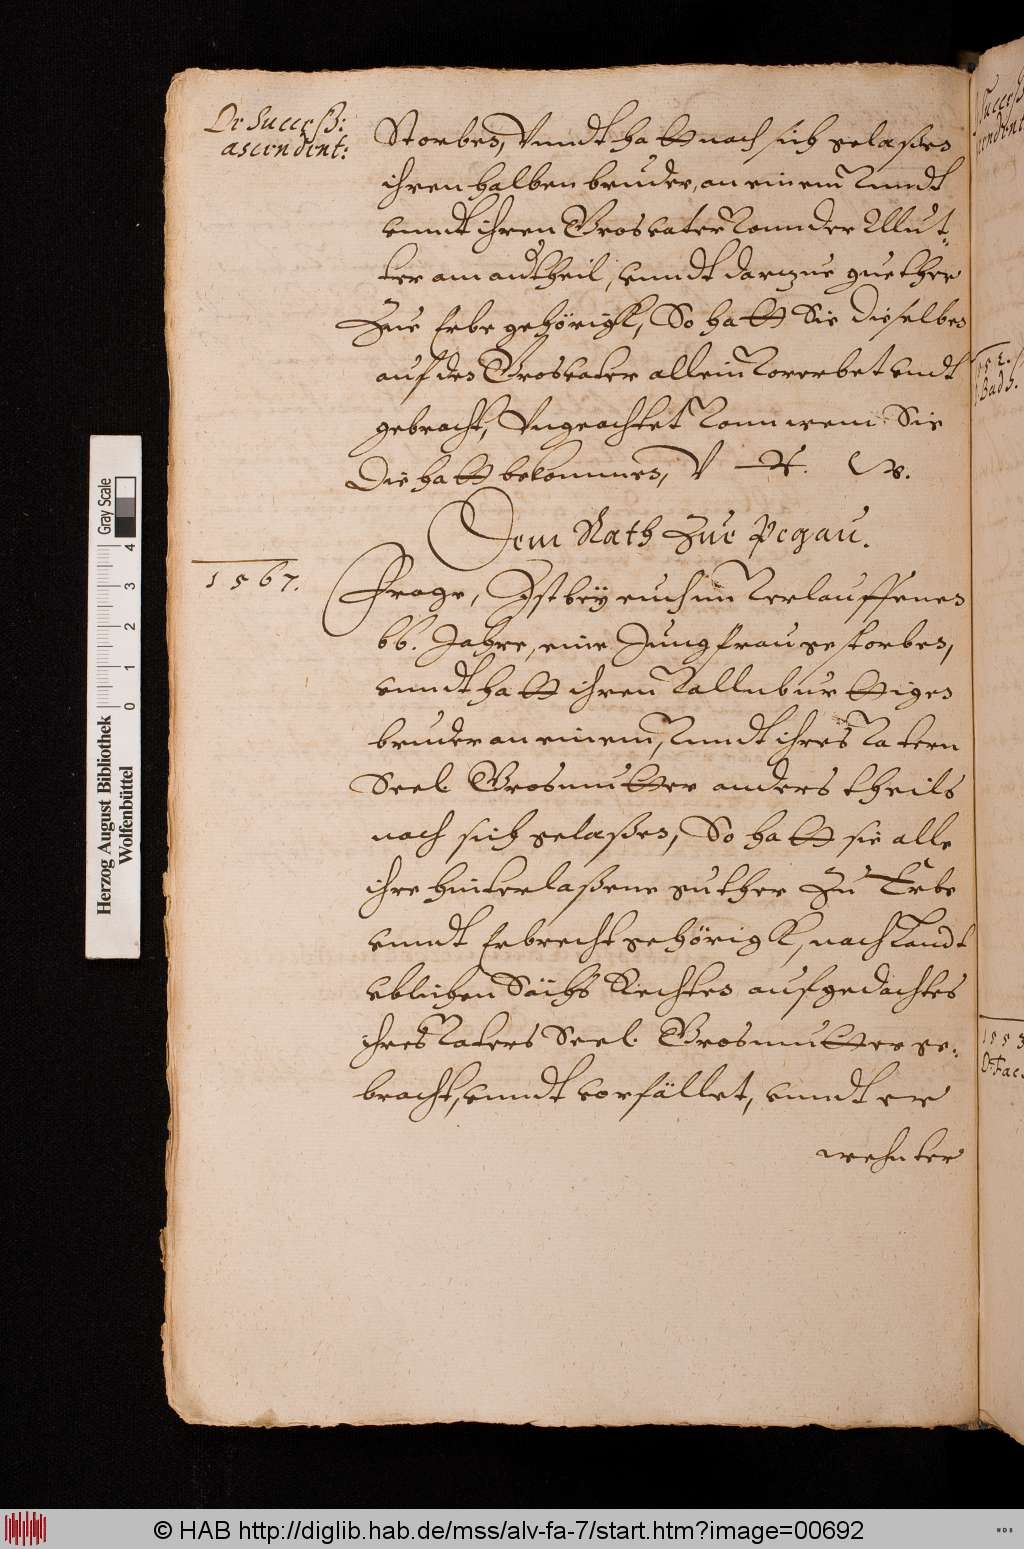 De Success:
ascendent:
Storben, Vnndt hatt nach sich gelaßen
ihren halben bruder, an einem Vnndt
vnndt ihren Grosvater Vonn der Mut-
ter am andtheil, vnndt darzue guether
Zue Erbe gehörigk, So hatt Sie dieselben
auf des Grosvater allein Vorerbet vndt
gebracht, Vngeachtet Vonn wem Sie
Die hatt bekommen, V R. W.
Dem Rath Zue Pegau.
1567.
Frage, Ist bey euch im Verlauffenen
66. Jahre, eine Jungfrau gestorben,
vnndt hatt ihren Vollnburttigen
bruder an einem, Vnndt ihres Vatern
Seel. Grosmutter anders theils
nach sich gelaßen, So hatt sie alle
ihre hinterlaßene guther Zu Erbe
vnndt Erbrecht gehörigk, nach Landt
vblichen Sächs Rechten auf gedachten
ihres Vaters Seel. Grosmutter ge-
bracht, vnndt vorfället, vnndt er
wehnter
1553
Herzog August Bibliothek
Wolfenbüttel
Gray Scale
0 1 2 3 4
© HAB http://diglib.hab.de/mss/alv-fa-7/start.htm?image=00692